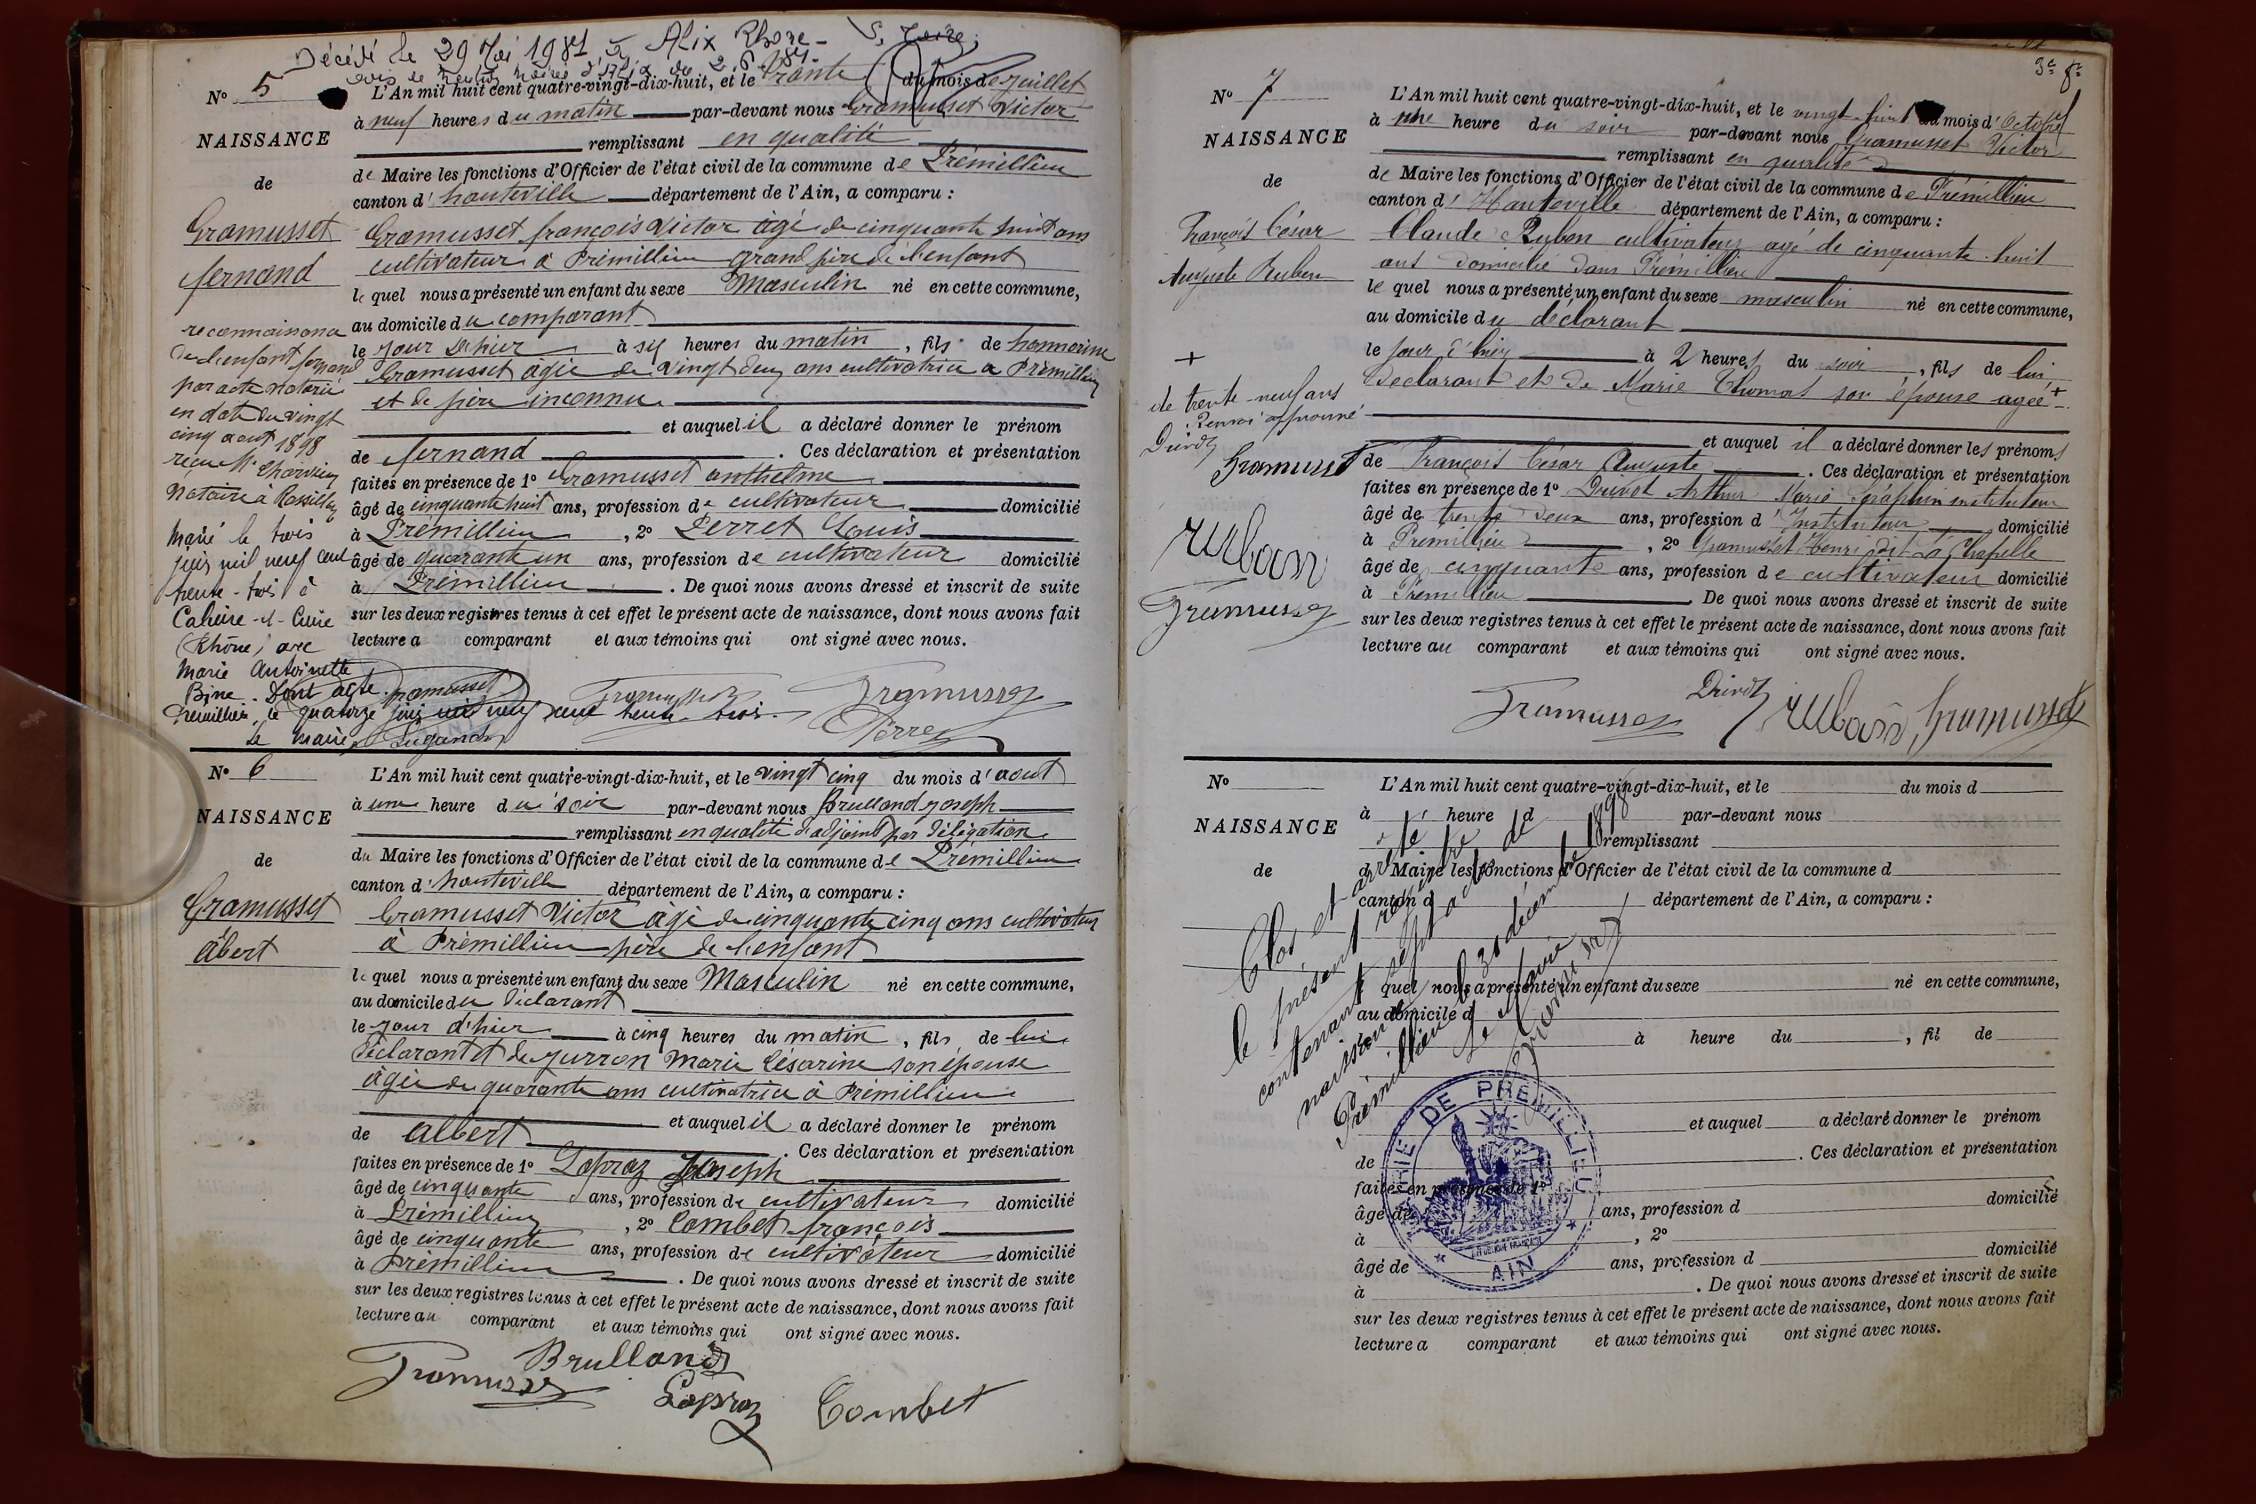 Décédé le 29 Mai 1981 à Alix Rhône
avis de Mention Mairie d'Alix du 2.6.81.
N° 5
NAISSANCE
de
Gramusset
fernand
reconnaissance
de l'enfant fernand
par acte notarié
en date du vingt
cinq aout 1898
reçu Me
Notaire à Rossillon
Marié le trois
juin mil neuf cent
trente-trois à
Caluire-et-Cuire
(Rhône) avec
Marie Antoinette
Bine. Dont acte.
Prémillieu, le quatorze juin mil neuf cent trente-trois.
Le Maire,
L'An mil huit cent quatre-vingt-dix-huit, et le Trente du mois de Juillet
à neuf heures du matin par-devant nous Gramusset Victor
remplissant en qualité
de Maire les fonctions d'Officier de l'état civil de la commune de Prémillieu
canton d'hauteville département de l'Ain, a comparu :
Gramusset françois Victor âgé de cinquante huit ans
cultivateur à Prémillieu grand père de l'enfant
le quel nous a présenté un enfant du sexe Masculin né en cette commune,
au domicile du comparant
le jour d'hier à six heures du matin, fils de honnorine
Gramusset âgée de vingt deux ans cultivatrice à Prémillieu
et de père inconnu
et auquel il a déclaré donner le prénom
de fernand. Ces déclaration et présentation
faites en présence de 1° Gramusset anthelme
âgé de cinquante huit ans, profession de cultivateur domicilié
à Prémillieu, 2° Perret Louis
âgé de quarante un ans, profession de cultivateur domicilié
à Prémillieu. De quoi nous avons dressé et inscrit de suite
sur les deux registres tenus à cet effet le présent acte de naissance, dont nous avons fait
lecture a comparant et aux témoins qui ont signé avec nous.
Gramusset Gramusset Gramusset
Perret
N° 6
NAISSANCE
de
Gramusset
Albert
L'An mil huit cent quatre-vingt-dix-huit, et le vingt cinq du mois d'aout
à une heure du soir par-devant nous Brulland joseph
remplissant en qualité d'adjoint par délégation
du Maire les fonctions d'Officier de l'état civil de la commune de Prémillieu
canton d'hauteville département de l'Ain, a comparu :
Gramusset Victor âgé de cinquante cinq ans cultivateur
à Prémillieu père de l'enfant
le quel nous a présenté un enfant du sexe Masculin né en cette commune,
au domicile du déclarant
le jour d'hier à cinq heures du matin, fils de lui
déclarant et de jurron Marie Césarine son épouse
âgée de quarante ans cultivatrice à Prémillieu
et auquel il a déclaré donner le prénom
de albert. Ces déclaration et présentation
faites en présence de 1° Lapraz Joseph
âgé de cinquante ans, profession de cultivateur domicilié
à Prémillieu, 2° Combet françois
âgé de cinquante ans, profession de cultivateur domicilié
à Prémillieu. De quoi nous avons dressé et inscrit de suite
sur les deux registres tenus à cet effet le présent acte de naissance, dont nous avons fait
lecture au comparant et aux témoins qui ont signé avec nous.
Gramusset Brulland
Lapraz Combet
N° 7
NAISSANCE
de
François César
Auguste Ruben
+
de trente-neuf ans
Renvoi approuvé
Gramusset
Gramusset
L'An mil huit cent quatre-vingt-dix-huit, et le vingt-huit du mois d'Octobre
à une heure du soir par-devant nous Gramusset Victor
remplissant en qualité
de Maire les fonctions d'Officier de l'état civil de la commune de Prémillieu
canton d'Hauteville département de l'Ain, a comparu :
Claude Ruben cultivateur agé de cinquante-huit
ans domicilié dans Prémillieu
le quel nous a présenté un enfant du sexe masculin né en cette commune,
au domicile du déclarant
le jour d'hier à 2 heures du soir, fils de lui
déclarant et de Marie Thomas son épouse agée +
et auquel il a déclaré donner les prénoms
de François César Auguste. Ces déclaration et présentation
faites en présence de 1° Arthur Marie Séraphin instituteur
âgé de trente deux ans, profession d'Instituteur domicilié
à Prémillieu, 2° Gramusset Henri dit La Chapelle
âgé de cinquante ans, profession de cultivateur domicilié
à Prémillieu. De quoi nous avons dressé et inscrit de suite
sur les deux registres tenus à cet effet le présent acte de naissance, dont nous avons fait
lecture au comparant et aux témoins qui ont signé avec nous.
Gramusset Gramusset
N°
NAISSANCE
de
L'An mil huit cent quatre-vingt-dix-huit, et le du mois d
à heure d par-devant nous
remplissant
d Maire les fonctions d'Officier de l'état civil de la commune d
canton d département de l'Ain, a comparu :
quel nous a présenté un enfant du sexe né en cette commune,
au domicile d
à heure du, fil de
et auquel a déclaré donner le prénom
de. Ces déclaration et présentation
faites en présence de 1°
âgé de ans, profession d domicilié
à, 2°
âgé de ans, profession d domicilié
à. De quoi nous avons dressé et inscrit de suite
sur les deux registres tenus à cet effet le présent acte de naissance, dont nous avons fait
lecture a comparant et aux témoins qui ont signé avec nous.
Clos et arrêté
le présent registre de
contenant sept actes de
naissance
Prémillieu le 31 décembre 1898
Le Maire
Gramusset
MAIRIE DE PREMILLIEU
AIN